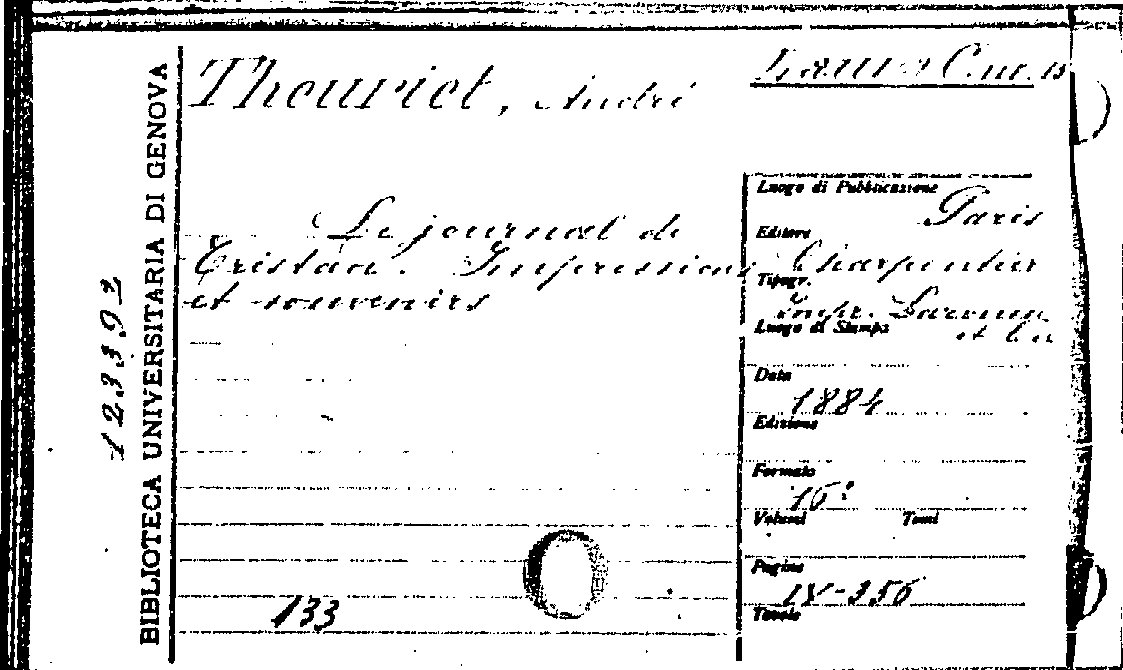 BIBLIOTECA UNIVERSITARIA DI GENOVA
123392
Theuriet, André
Laura C.
Le journal de
Tristan. Impressions
et souvenirs
133
Luogo di Pubblicazione
Paris
Editore
Charpentier
Tipogr.
Impr.
Luogo di Stampa
et Cie
Data
1884
Edizione
Formato
16°
Volumi Tomi
Pagine
IV-356
Tavole